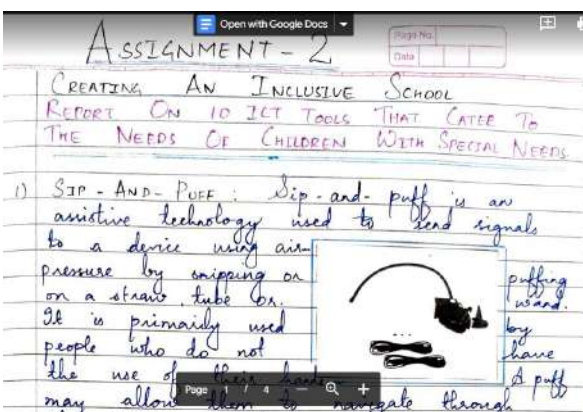 Open with Google Docs
ASSIGNMENT - 2
Page No.
Date
CREATING AN INCLUSIVE SCHOOL
REPORT ON 10 ICT TOOLS THAT CATER TO
THE NEEDS OF CHILDREN WITH SPECIAL NEEDS
1) SIP - AND - PUFF : Sip - and - puff is an
assistive technology used to send signals
to a device using air-
pressure by snipping or puffing
on a straw, tube or. wand.
It is primarily used by
people who do not have
the use of their A puff
may allow them to navigate through
Page / 4